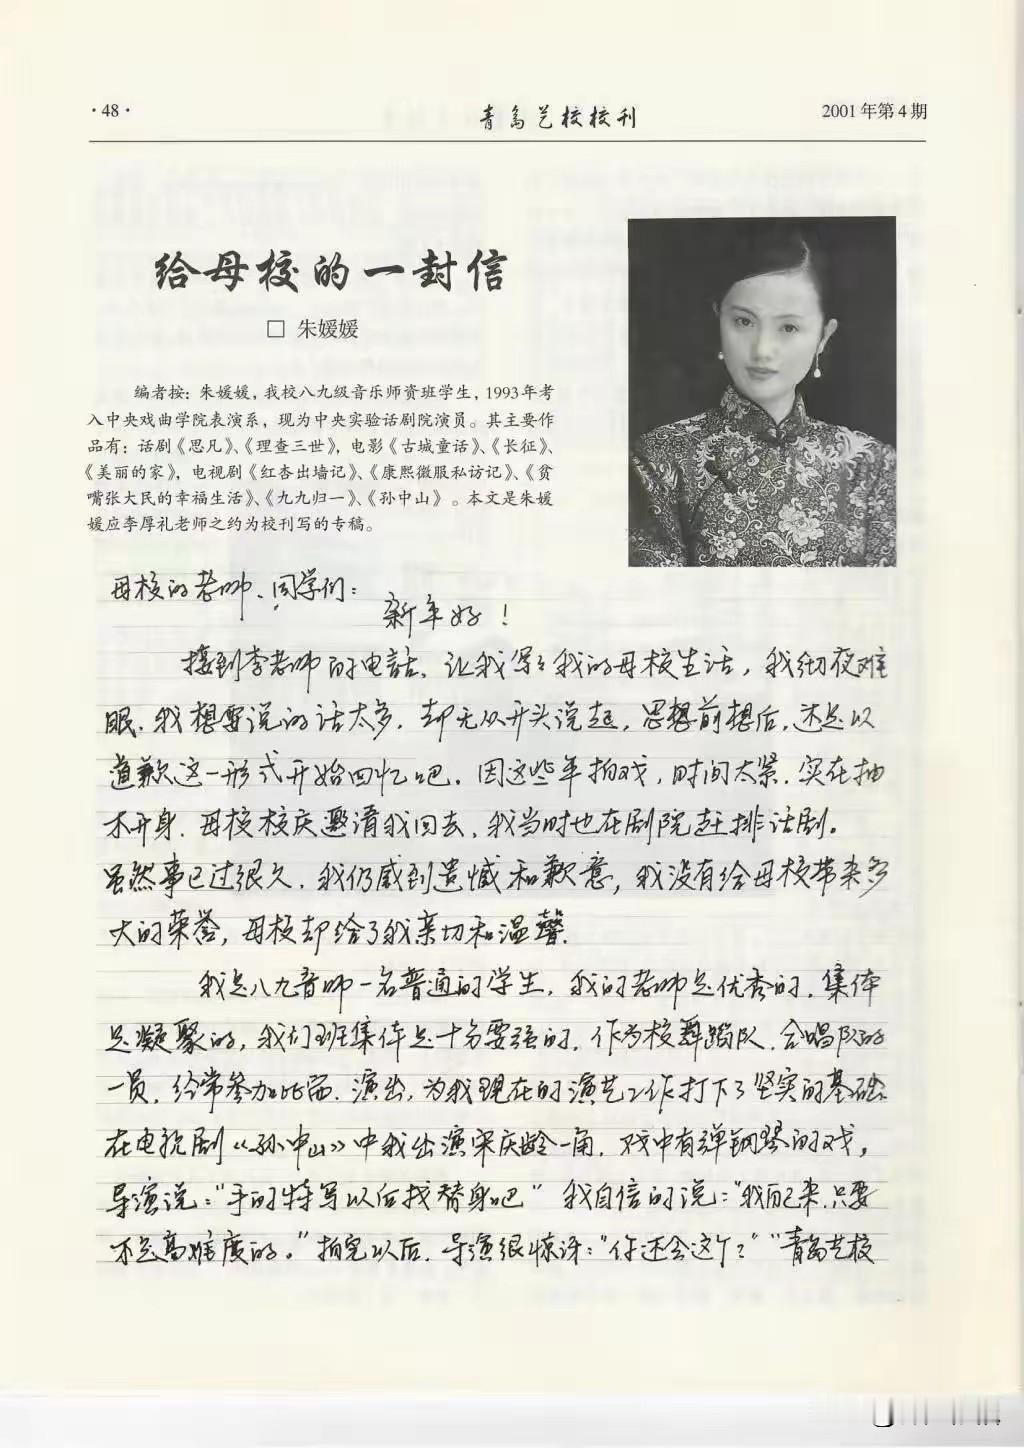 ·48·
青岛艺校校刊
2001年第4期
给母校的一封信
□ 朱媛媛
编者按：朱媛媛，我校八九级音乐师资班学生，1993年考
入中央戏曲学院表演系，现为中央实验话剧院演员。其主要作
品有：话剧《思凡》、《理查三世》，电影《古城童话》、《长征》、
《美丽的家》，电视剧《红杏出墙记》、《康熙微服私访记》、《贫
嘴张大民的幸福生活》、《九九归一》、《孙中山》。本文是朱媛
媛应李厚礼老师之约为校刊写的专稿。
母校的老师、同学们：
新年好！
接到李老师的电話、让我写写我的母校生活，我彻夜难
眠、我想要说的话太多、却无从开头说起，思想前想后，还是以
道歉这一形式开始回忆吧。因这些年拍戏，时间太紧．实在抽
不开身．母校校庆邀请我回去、我当时也在剧院赶排话剧。
虽然事已过很久．我仍感到遗憾和歉意，我没有给母校带来多
大的荣誉，母校却给了我亲切和温馨．
我是八九音师一名普通的学生．我的老师是优秀的．集体
是凝聚的，我们班集体是十分要强的．作为校舞蹈队．合唱队的
一员．经常参加比赛．演出，为我现在的演艺工作打下了坚实的基础．
在电视剧《孙中山》中我出演宋庆龄一角．戏中有弹钢琴的戏，
导演说：“手的特写以后找替身吧” 我自信的说：“我自己来．只要
不是高难度的。”拍完以后．导演很惊讶：“你还会这个？”“青岛艺校